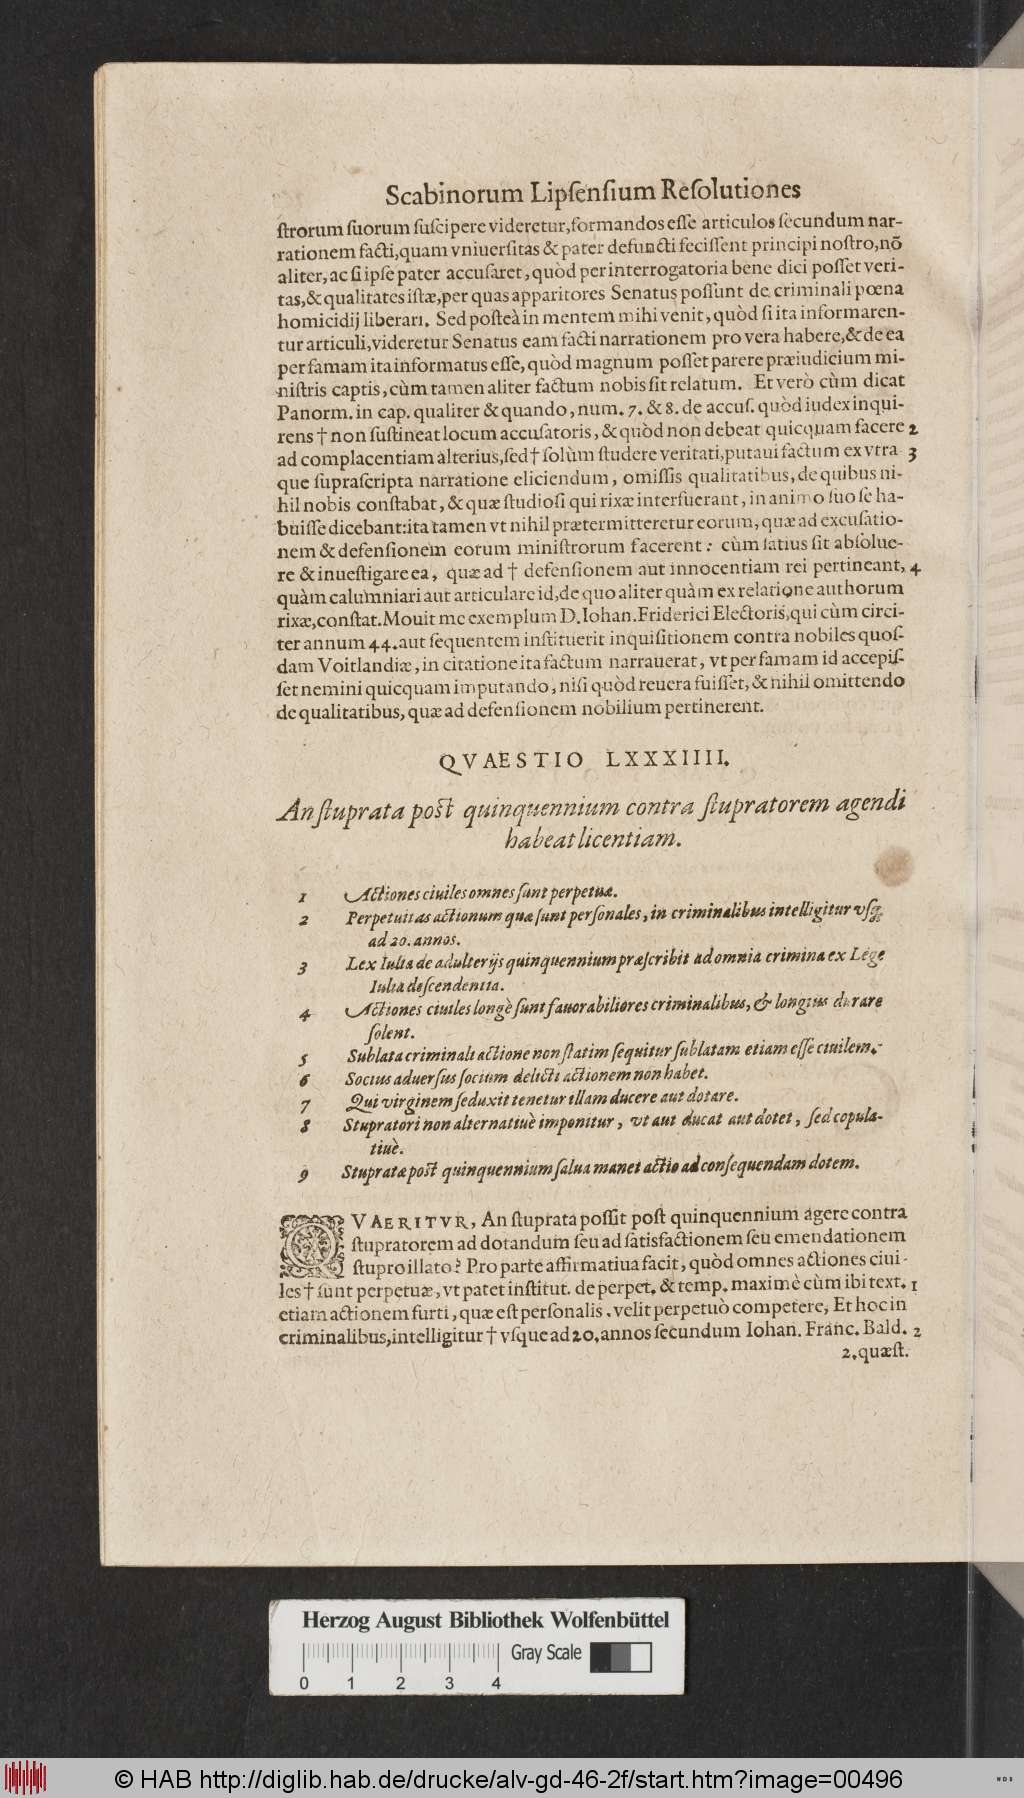 Scabinorum Lipſenſium Reſolutiones
ſtrorum ſuorum ſuſcipere videretur, formandos eſſe articulos ſecundum nar-
rationem facti, quam vniuerſitas & pater defuncti feciſſent principi noſtro, nõ
aliter, ac ſi ipſe pater accuſaret, quòd per interrogatoria bene dici poſſet veri-
tas, & qualitates iſtæ, per quas apparitores Senatus poſſunt de criminali pœna
homicidij liberari. Sed poſteà in mentem mihi venit, quòd ſi ita informaren-
tur articuli, videretur Senatus eam facti narrationem pro vera habere, & de ea
per famam ita informatus eſſe, quòd magnum poſſet parere præiudicium mi-
niſtris captis, cùm tamen aliter factum nobis ſit relatum. Et verò cùm dicat
Panorm. in cap. qualiter & quando, num. 7. & 8. de accuſ. quòd iudex inqui-
rens † non ſuſtineat locum accuſatoris, & quòd non debeat quicquam facere 2
ad complacentiam alterius, ſed † ſolùm ſtudere veritati, putaui factum ex vtra- 3
que ſupraſcripta narratione eliciendum, omiſſis qualitatibus, de quibus ni-
hil nobis conſtabat, & quæ ſtudioſi qui rixæ interfuerant, in animo ſuo ſe ha-
buiſſe dicebant: ita tamen vt nihil prætermitteretur eorum, quæ ad excuſatio-
nem & defenſionem eorum miniſtrorum facerent: cùm ſatius ſit abſolue-
re & inueſtigare ea, quæ ad † defenſionem aut innocentiam rei pertineant, 4
quàm calumniari aut articulare id, de quo aliter quàm ex relatione authorum
rixæ, conſtat. Mouit me exemplum D. Iohan. Friderici Electoris, qui cùm circi-
ter annum 44. aut ſequentem inſtituerit inquiſitionem contra nobiles quoſ-
dam Voitlandiæ, in citatione ita factum narrauerat, vt per famam id accepiſ-
ſet nemini quicquam imputando, niſi quòd reuera fuiſſet, & nihil omittendo
de qualitatibus, quæ ad defenſionem nobilium pertinerent.
QVAESTIO LXXXIIII.
An ſtuprata poſt quinquennium contra ſtupratorem agendi
habeat licentiam.
1 Actiones ciuiles omnes ſunt perpetuæ.
2 Perpetuitas actionum quæ ſunt perſonales, in criminalibus intelligitur vſq́;
ad 20. annos.
3 Lex Iulia de adulterijs quinquennium præſcribit ad omnia crimina ex Lege
Iulia deſcendentia.
4 Actiones ciuiles longè ſunt fauorabiliores criminalibus, & longius durare
ſolent.
5 Sublata criminali actione non ſtatim ſequitur ſublatam etiam eſſe ciuilem.
6 Socius aduerſus ſocium delicti actionem non habet.
7 Qui virginem ſeduxit tenetur illam ducere aut dotare.
8 Stupratori non alternatiuè imponitur, vt aut ducat aut dotet, ſed copula-
tiuè.
9 Stupratæ poſt quinquennium ſalua manet actio ad conſequendam dotem.
QVAERITVR, An ſtuprata poſſit poſt quinquennium agere contra
ſtupratorem ad dotandum ſeu ad ſatisfactionem ſeu emendationem
ſtupro illato? Pro parte affirmatiua facit, quòd omnes actiones ciui-
les † ſunt perpetuæ, vt patet inſtitut. de perpet. & temp. maximè cùm ibi text. 1
etiam actionem furti, quæ eſt perſonalis. velit perpetuò competere, Et hoc in
criminalibus, intelligitur † vſque ad 20. annos ſecundum Iohan. Franc. Bald. 2
2. quæſt.
Herzog August Bibliothek Wolfenbüttel
Gray Scale
0 1 2 3 4
© HAB http://diglib.hab.de/drucke/alv-gd-46-2f/start.htm?image=00496